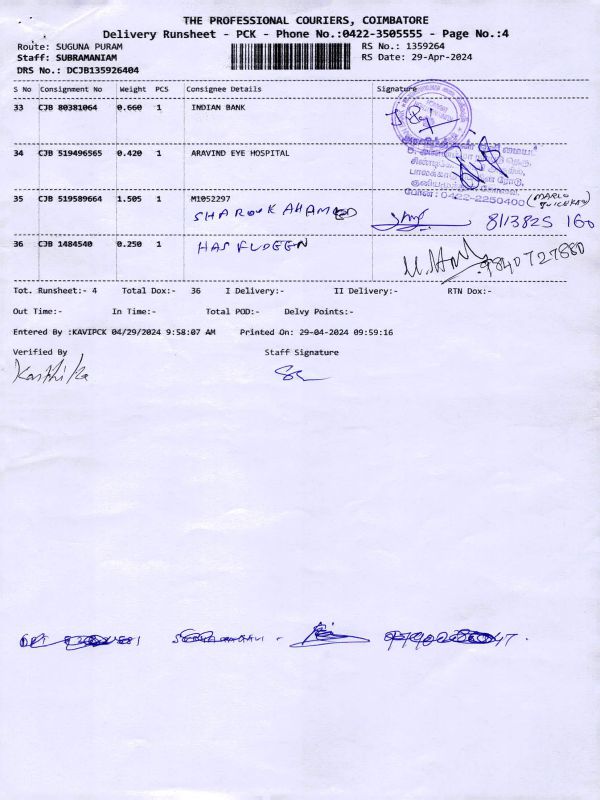 THE PROFESSIONAL COURIERS, COIMBATORE
Delivery Runsheet - PCK - Phone No.:0422-3505555 - Page No.:4
Route: SUGUNA PURAM RS No.: 1359264
Staff: SUBRAMANIAM RS Date: 29-Apr-2024
DRS No.: DCJB135926404
S No Consignment No Weight PCS Consignee Details Signature
33 CJB 80381064 0.660 1 INDIAN BANK
34 CJB 519496565 0.420 1 ARAVIND EYE HOSPITAL
போன் : 0422-2250400
35 CJB 519589664 1.505 1 M1052297
SHAROOK AHAMED 8113825 160
36 CJB 1484540 0.250 1 9840727880
Tot. Runsheet:- 4 Total Dox:- 36 I Delivery:- II Delivery:- RTN Dox:-
Out Time:- In Time:- Total POD:- Delvy Points:-
Entered By :KAVIPCK 04/29/2024 9:58:07 AM Printed On: 29-04-2024 09:59:16
Verified By Staff Signature
Karthika